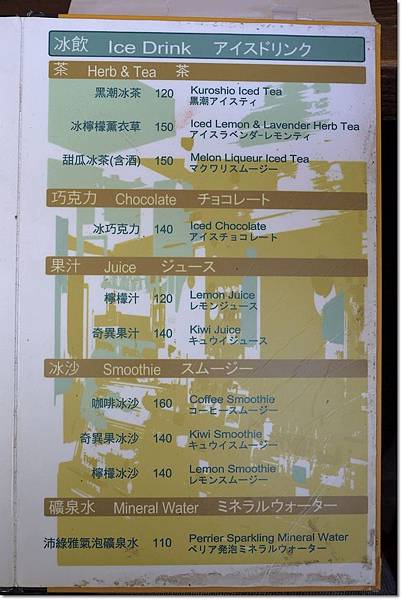 冰飲 Ice Drink アイスドリンク
茶 Herb & Tea 茶
黑潮冰茶 120 Kuroshio Iced Tea
黒潮アイスティ
冰檸檬薰衣草 150 Iced Lemon & Lavender Herb Tea
アイスラベンダーレモンティ
甜瓜冰茶(含酒) 150 Melon Liqueur Iced Tea
マクワリスムージー
巧克力 Chocolate チョコレート
冰巧克力 140 Iced Chocolate
アイスチョコレート
果汁 Juice ジュース
檸檬汁 120 Lemon Juice
レモンジュース
奇異果汁 140 Kiwi Juice
キュウイジュース
冰沙 Smoothie スムージー
咖啡冰沙 160 Coffee Smoothie
コーヒースムージー
奇異果冰沙 140 Kiwi Smoothie
キュウイスムージー
檸檬冰沙 140 Lemon Smoothie
レモンスムージー
礦泉水 Mineral Water ミネラルウォーター
沛綠雅氣泡礦泉水 110 Perrier Sparkling Mineral Water
ペリア発泡ミネラルウォーター